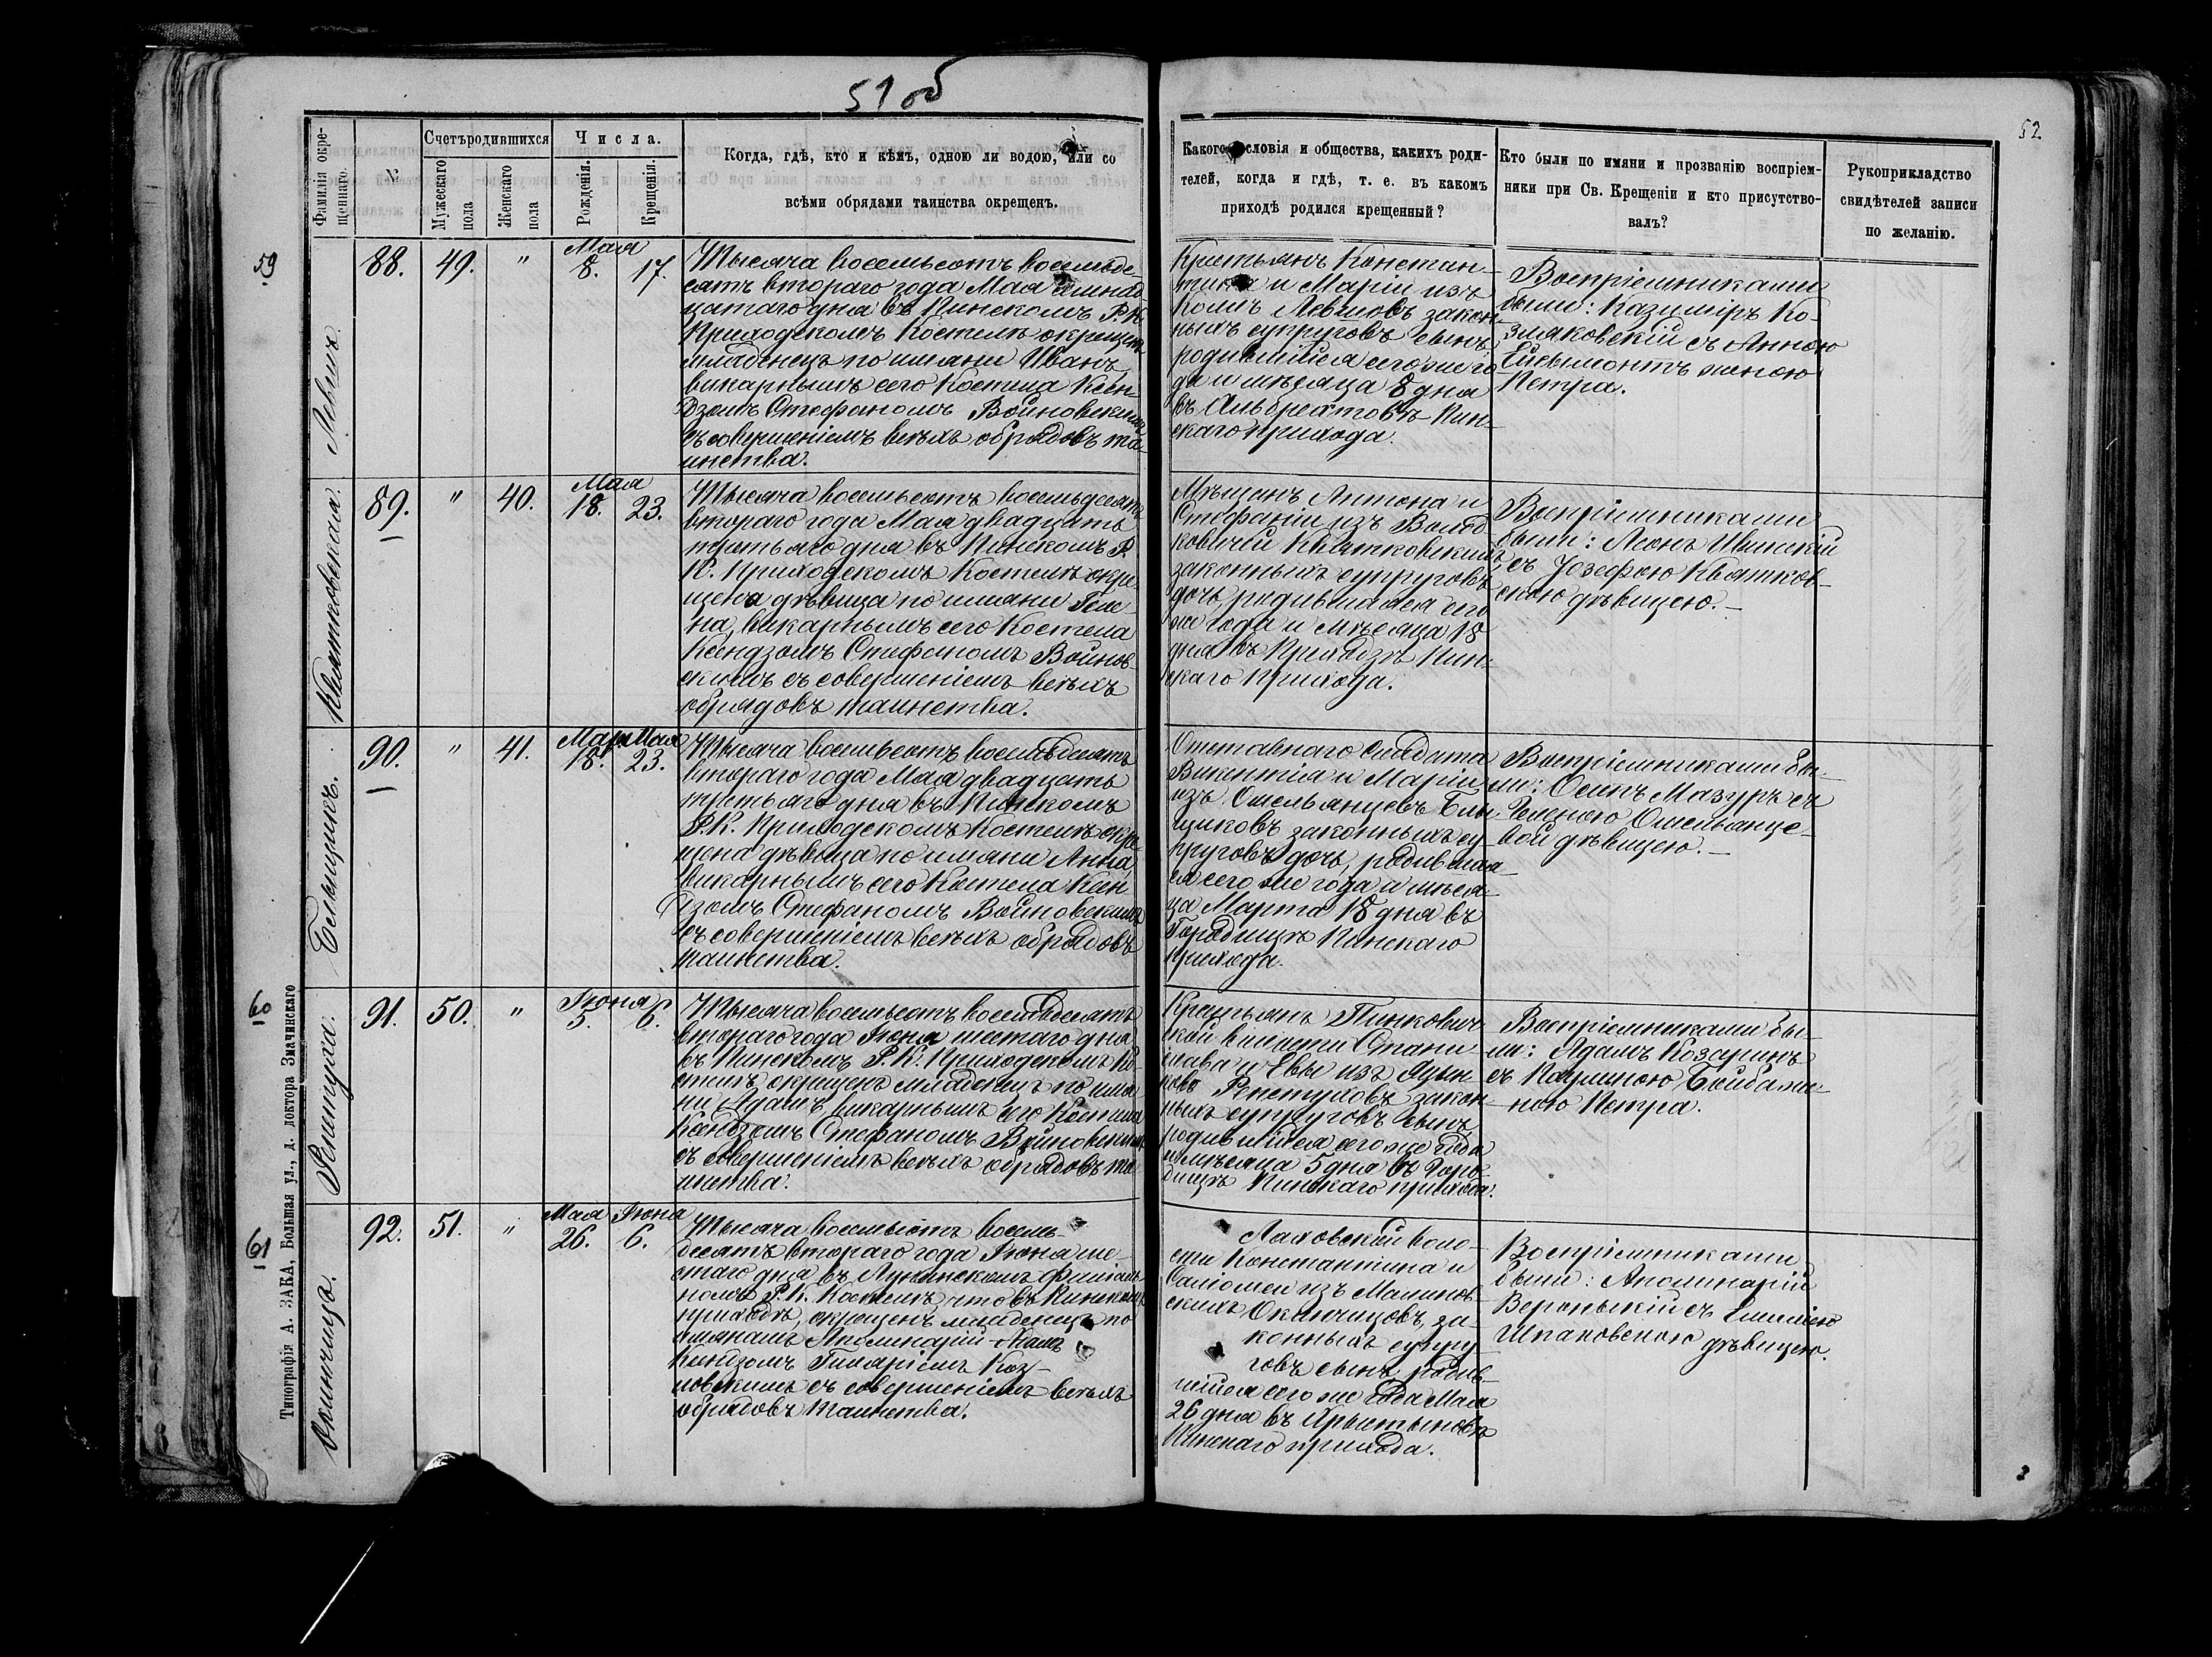 51 об
52
Фамилія окре-
щеннаго.
№
Счетъ родившихся
Мужескаго
пола
Женскаго
пола
Числа.
Рожденія.
Крещенія.
Когда, гдѣ, кто и кѣмъ, одною ли водою, или со
всѣми обрядами таинства окрещенъ.
Какого словія и общества, какихъ роди-
телей, когда и гдѣ, т. е. въ какомъ
приходѣ родился крещенный?
Кто были по имяни и прозванію воспріем-
ники при Св. Крещеніи и кто присутство-
валъ?
Рукоприкладство
свидѣтелей записи
по желанію.
59
88.
49.
"
Мая
8.
17.
Тысяча восемьсотъ восемьде-
сятъ втораго года Мая
цатаго дня въ Пинскомъ Р. К.
Приходскомъ Костелѣ окрещенъ
младенецъ по имяни Иванъ
викарнымъ сего Костела Ксен-
дзомъ Стефаномъ Войновскимъ
съ совершеніемъ всѣхъ обрядовъ та-
инства.
Крестьянъ Констан-
тина и Маріи изъ
законъ-
ныхъ супруговъ сынъ
родившійся сего же го-
да и мѣсяца 8 дня
въ Альбрехтовѣ Пин-
скаго прихода.
Воспріемниками
были: Казиміръ Ко-
зляковскій съ Анною
женою
Петра.
Квятковская.
89.
"
40.
Мая
18.
23.
Тысяча восемьсотъ восемьдесятъ
втораго года Мая двадцать
третьяго дня въ Пинскомъ Р.
К. Приходскомъ Костелѣ окре-
щена дѣвица по имяни Геле-
на, викарнымъ сего Костела
Ксендзомъ Стефаномъ Войнов-
скимъ съ совершеніемъ всѣхъ
обрядовъ таинства.
Мѣщанъ Антона и
Стефаніи изъ
Квятковскихъ
законныхъ супруговъ
дочь, родившаяся сего
же года и мѣсяца 18
дня въ Пин-
скаго прихода.
Воспріемниками
были: Леонъ
съ Іозефою Квятков-
скою дѣвицею.
Бельщикъ.
90.
"
41.
Марта Мая
18.
23.
Тысяча восемьсотъ восемьдесятъ
втораго года Мая двадцать
третьяго дня въ Пинскомъ
Р. К. Приходскомъ Костелѣ окре
щена дѣвица по имяни Анна,
викарнымъ сего Костела Ксен
дзомъ Стефаномъ Войновскимъ
съ совершеніемъ всѣхъ обрядовъ
таинства.
Отставнаго солдата
Викентія и Маріи
изъ Омельянцовъ Бель-
щиковъ законныхъ су-
пруговъ дочь, родившая-
ся сего же года и мѣся-
ца Марта 18 дня въ
Городищѣ Пинскаго
прихода.
Воспріемниками бы-
ли: Осипъ Мазуръ съ
Геленою Омельянцо-
вой дѣвицею.
60
Репетуха.
91.
50.
"
Іюня
5.
6.
Тысяча восемьсотъ восемьдесятъ
втораго года Іюня шестаго дня
въ Пинскомъ Р. К. Приходскомъ Ко-
стелѣ окрещенъ младенецъ по имя-
ни Адамъ, викарнымъ сего Костела
Ксендзомъ Стефаномъ Войновскимъ
съ совершеніемъ всѣхъ обрядовъ та-
инства.
Крестьянъ Пинкович-
ской волости Стани-
слава и Евы изъ
Репетуховъ закон-
ныхъ супруговъ сынъ
родившійся сего же года
и мѣсяца 5 дня въ Горо-
дищѣ Пинскаго прихода.
Воспріемниками бы-
ли: Адамъ Козаринъ
съ же-
ною Петра.
61
Окинчица.
92.
51.
"
Мая Іюня
26.
6.
Тысяча восемьсотъ восемь-
десятъ втораго года Іюня ше-
стаго дня въ Лунинскомъ филіаль-
номъ Р. К. Костелѣ, что въ Пинскомъ
приходѣ, окрещенъ младенецъ по
имянамъ Аполинарій-Адамъ
Ксендзомъ
съ совершеніемъ всѣхъ
обрядовъ таинства.
Лаховской воло-
сти Константина и
Саломеи изъ Малинов-
скихъ Окинчицовъ, за-
конныхъ супру-
говъ сынъ, родив-
шійся сего же года Мая
26 дня въ
Пинскаго прихода.
Воспріемниками
были: Аполинарій
съ Емиліею
Шпаковскою дѣвицею.
Типографія А. ЗАКА, Большая ул., д. доктора Значинскаго